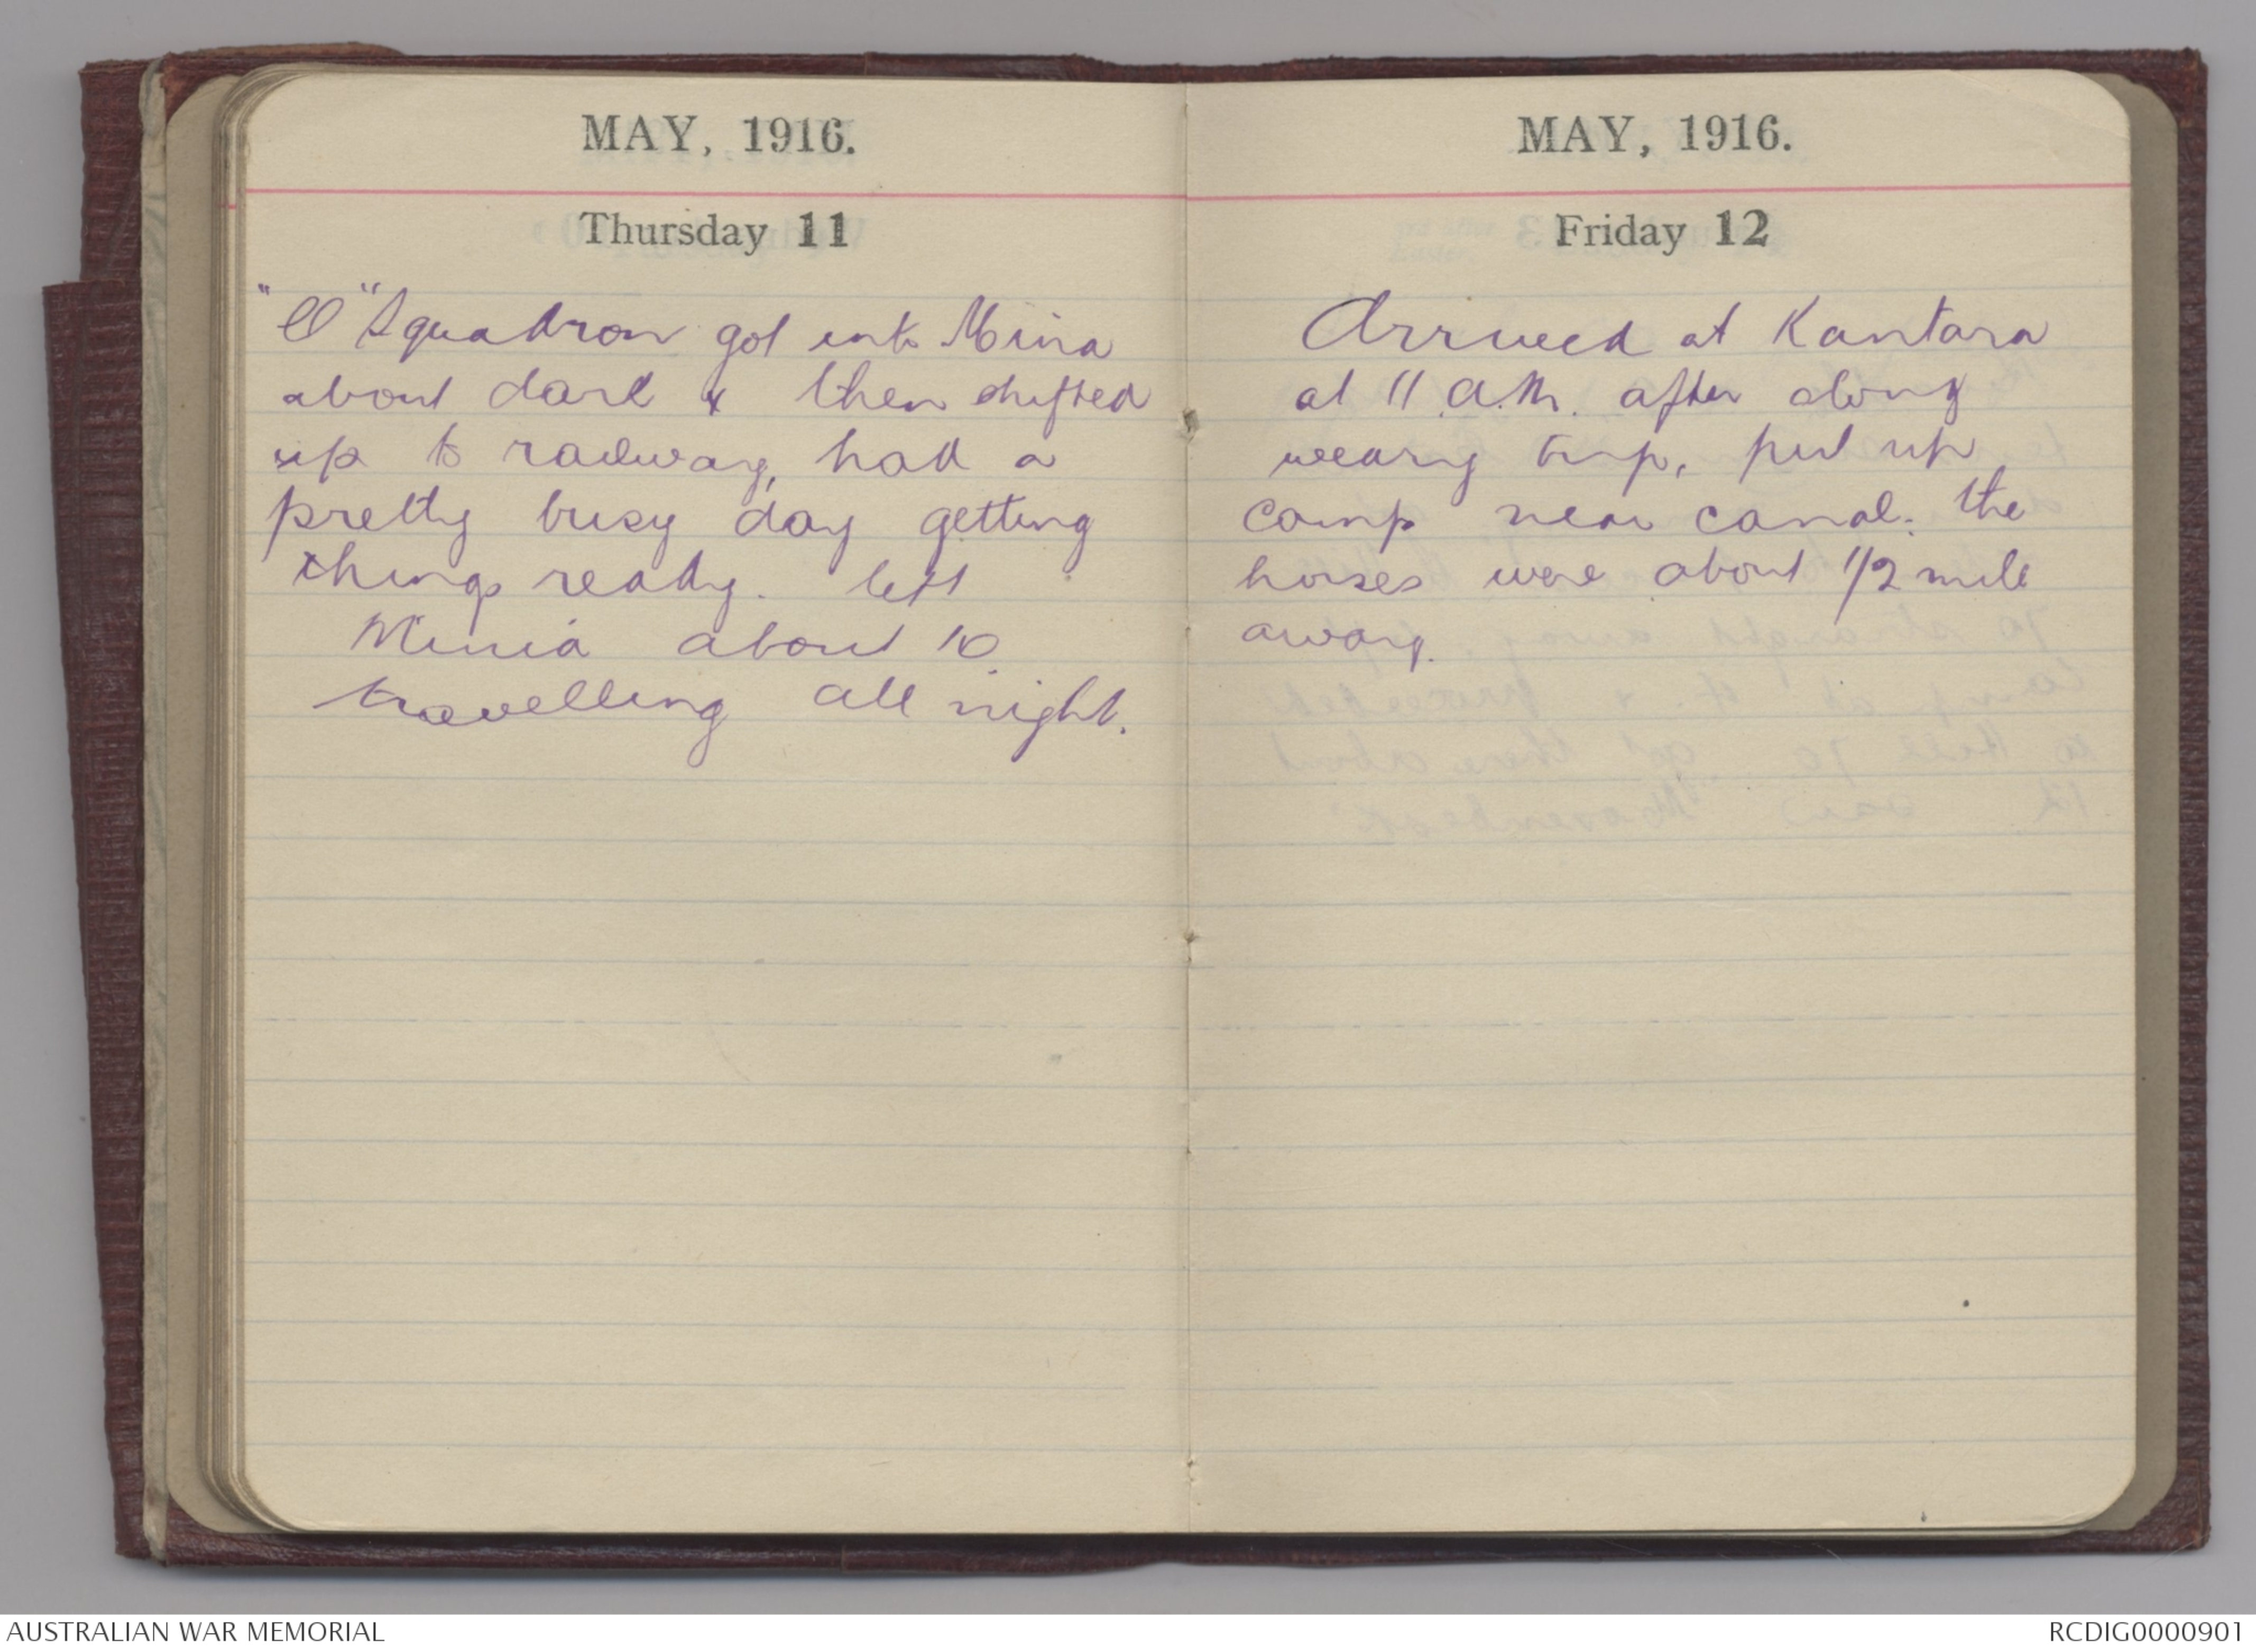 MAY, 1916.
Thursday 11
"C" Squadron got into Mina
about dark & then shifted
up to railway, had a
pretty busy day getting
things ready. left
Minia about 10
travelling all night.
MAY, 1916.
Friday 12
Arrived at Kantara
at 11 a.m. after along
weary trip, put up
camp near canal. the
horses were about 1/2 mile
away.
AUSTRALIAN WAR MEMORIAL
RCDIG0000901